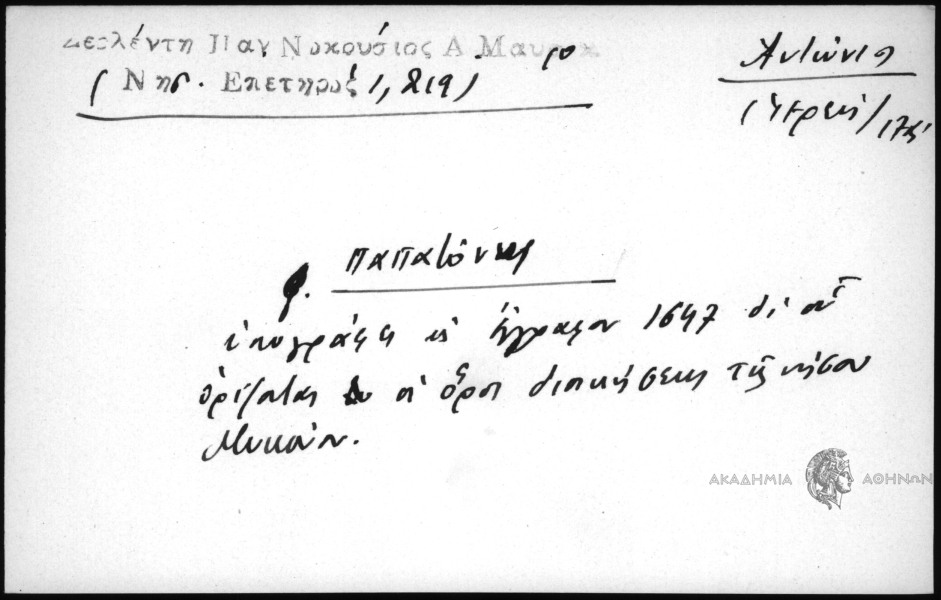 Δεσλέντη Παγ Νουκούσιος Α. Μαυρ
( Νησ. Επετηρίς 1, 219)
Ἀντώνιος
(ἱερεὺς)
Παπατόνης
ὑπογράφει εἰς ἔγγραφον 1647 δι' οὗ
ὁρίζονται οἱ ὅροι διοικήσεως τῆς νήσου
Μυκόνου.
ΑΚΑΔΗΜΙΑ ΑΘΗΝΩΝ